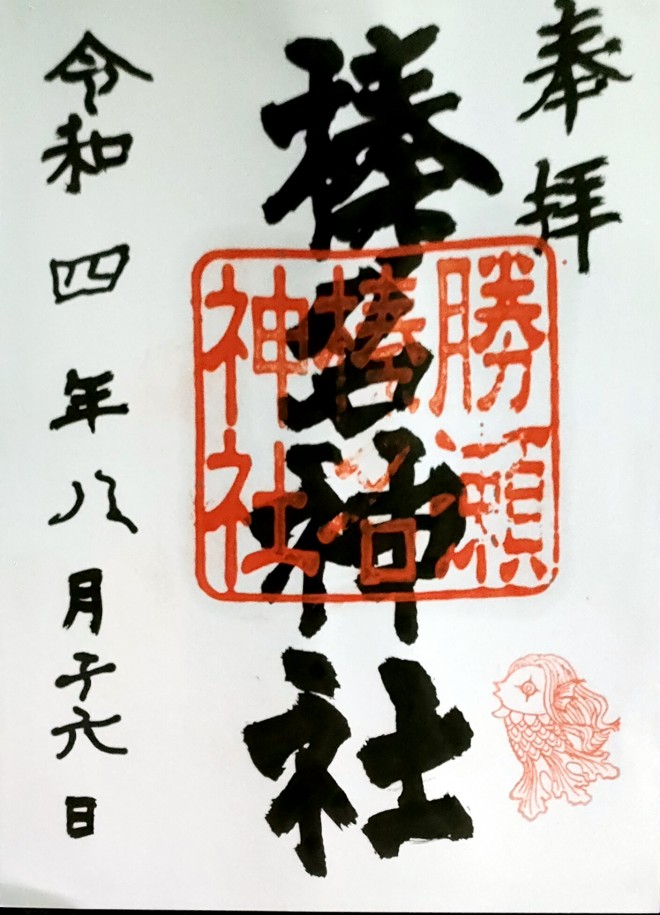 奉拝
榛名神社
勝瀬
榛名
神社
令和四年八月六日